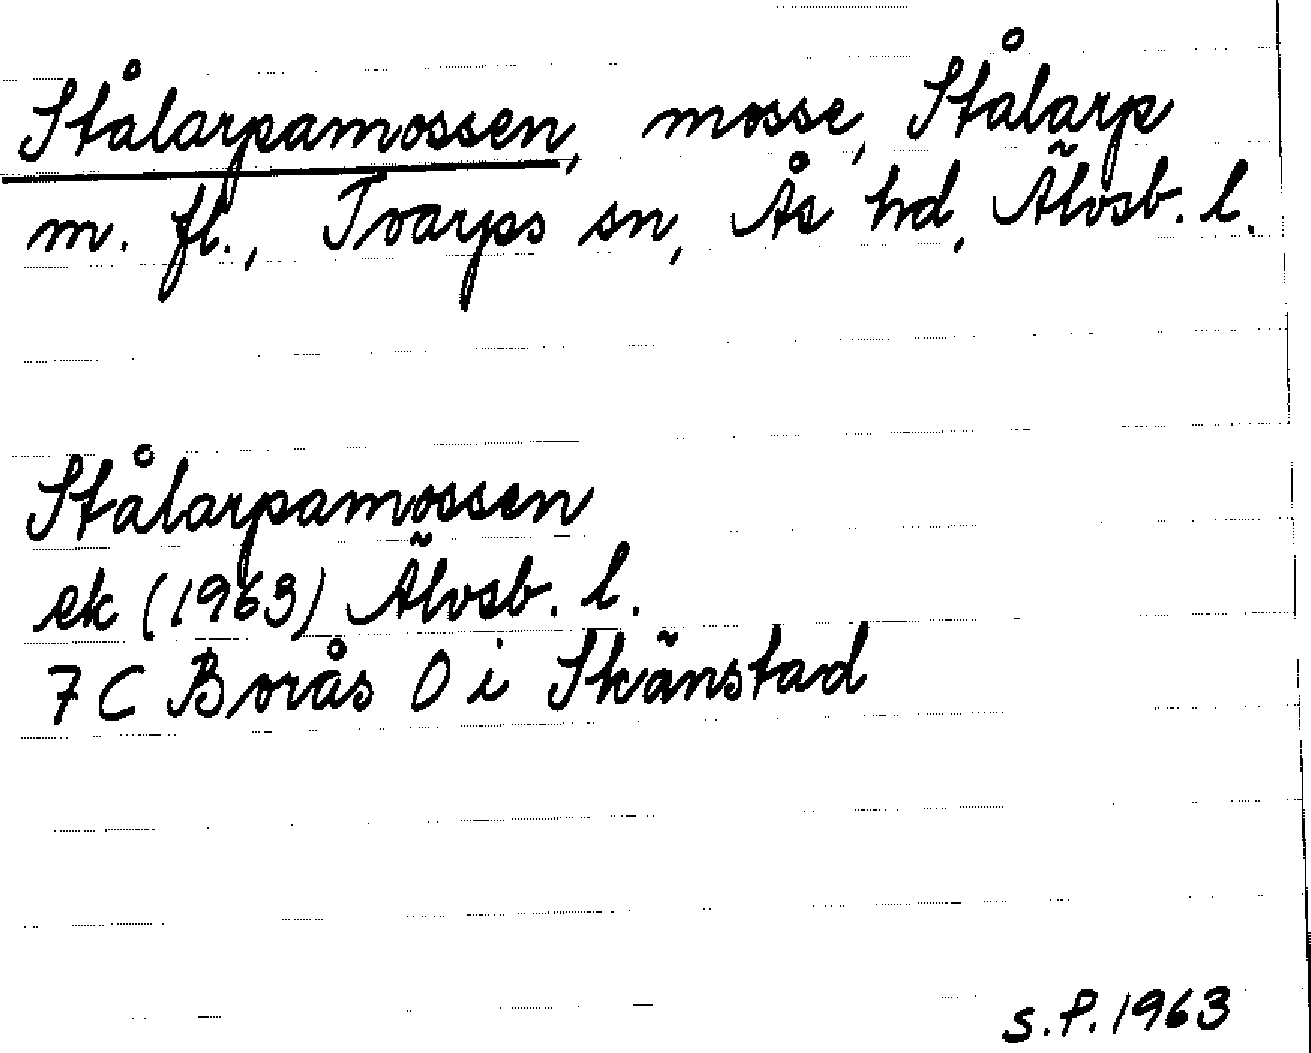 Stålarpamossen, mosse, Stålarp
m. fl., Tvarps sn, Ås hd, Älvsb. l.
Stålarpamossen
ek (1963) Älvsb. l.
7 C Borås 0 i Skänstad
S.P. 1963